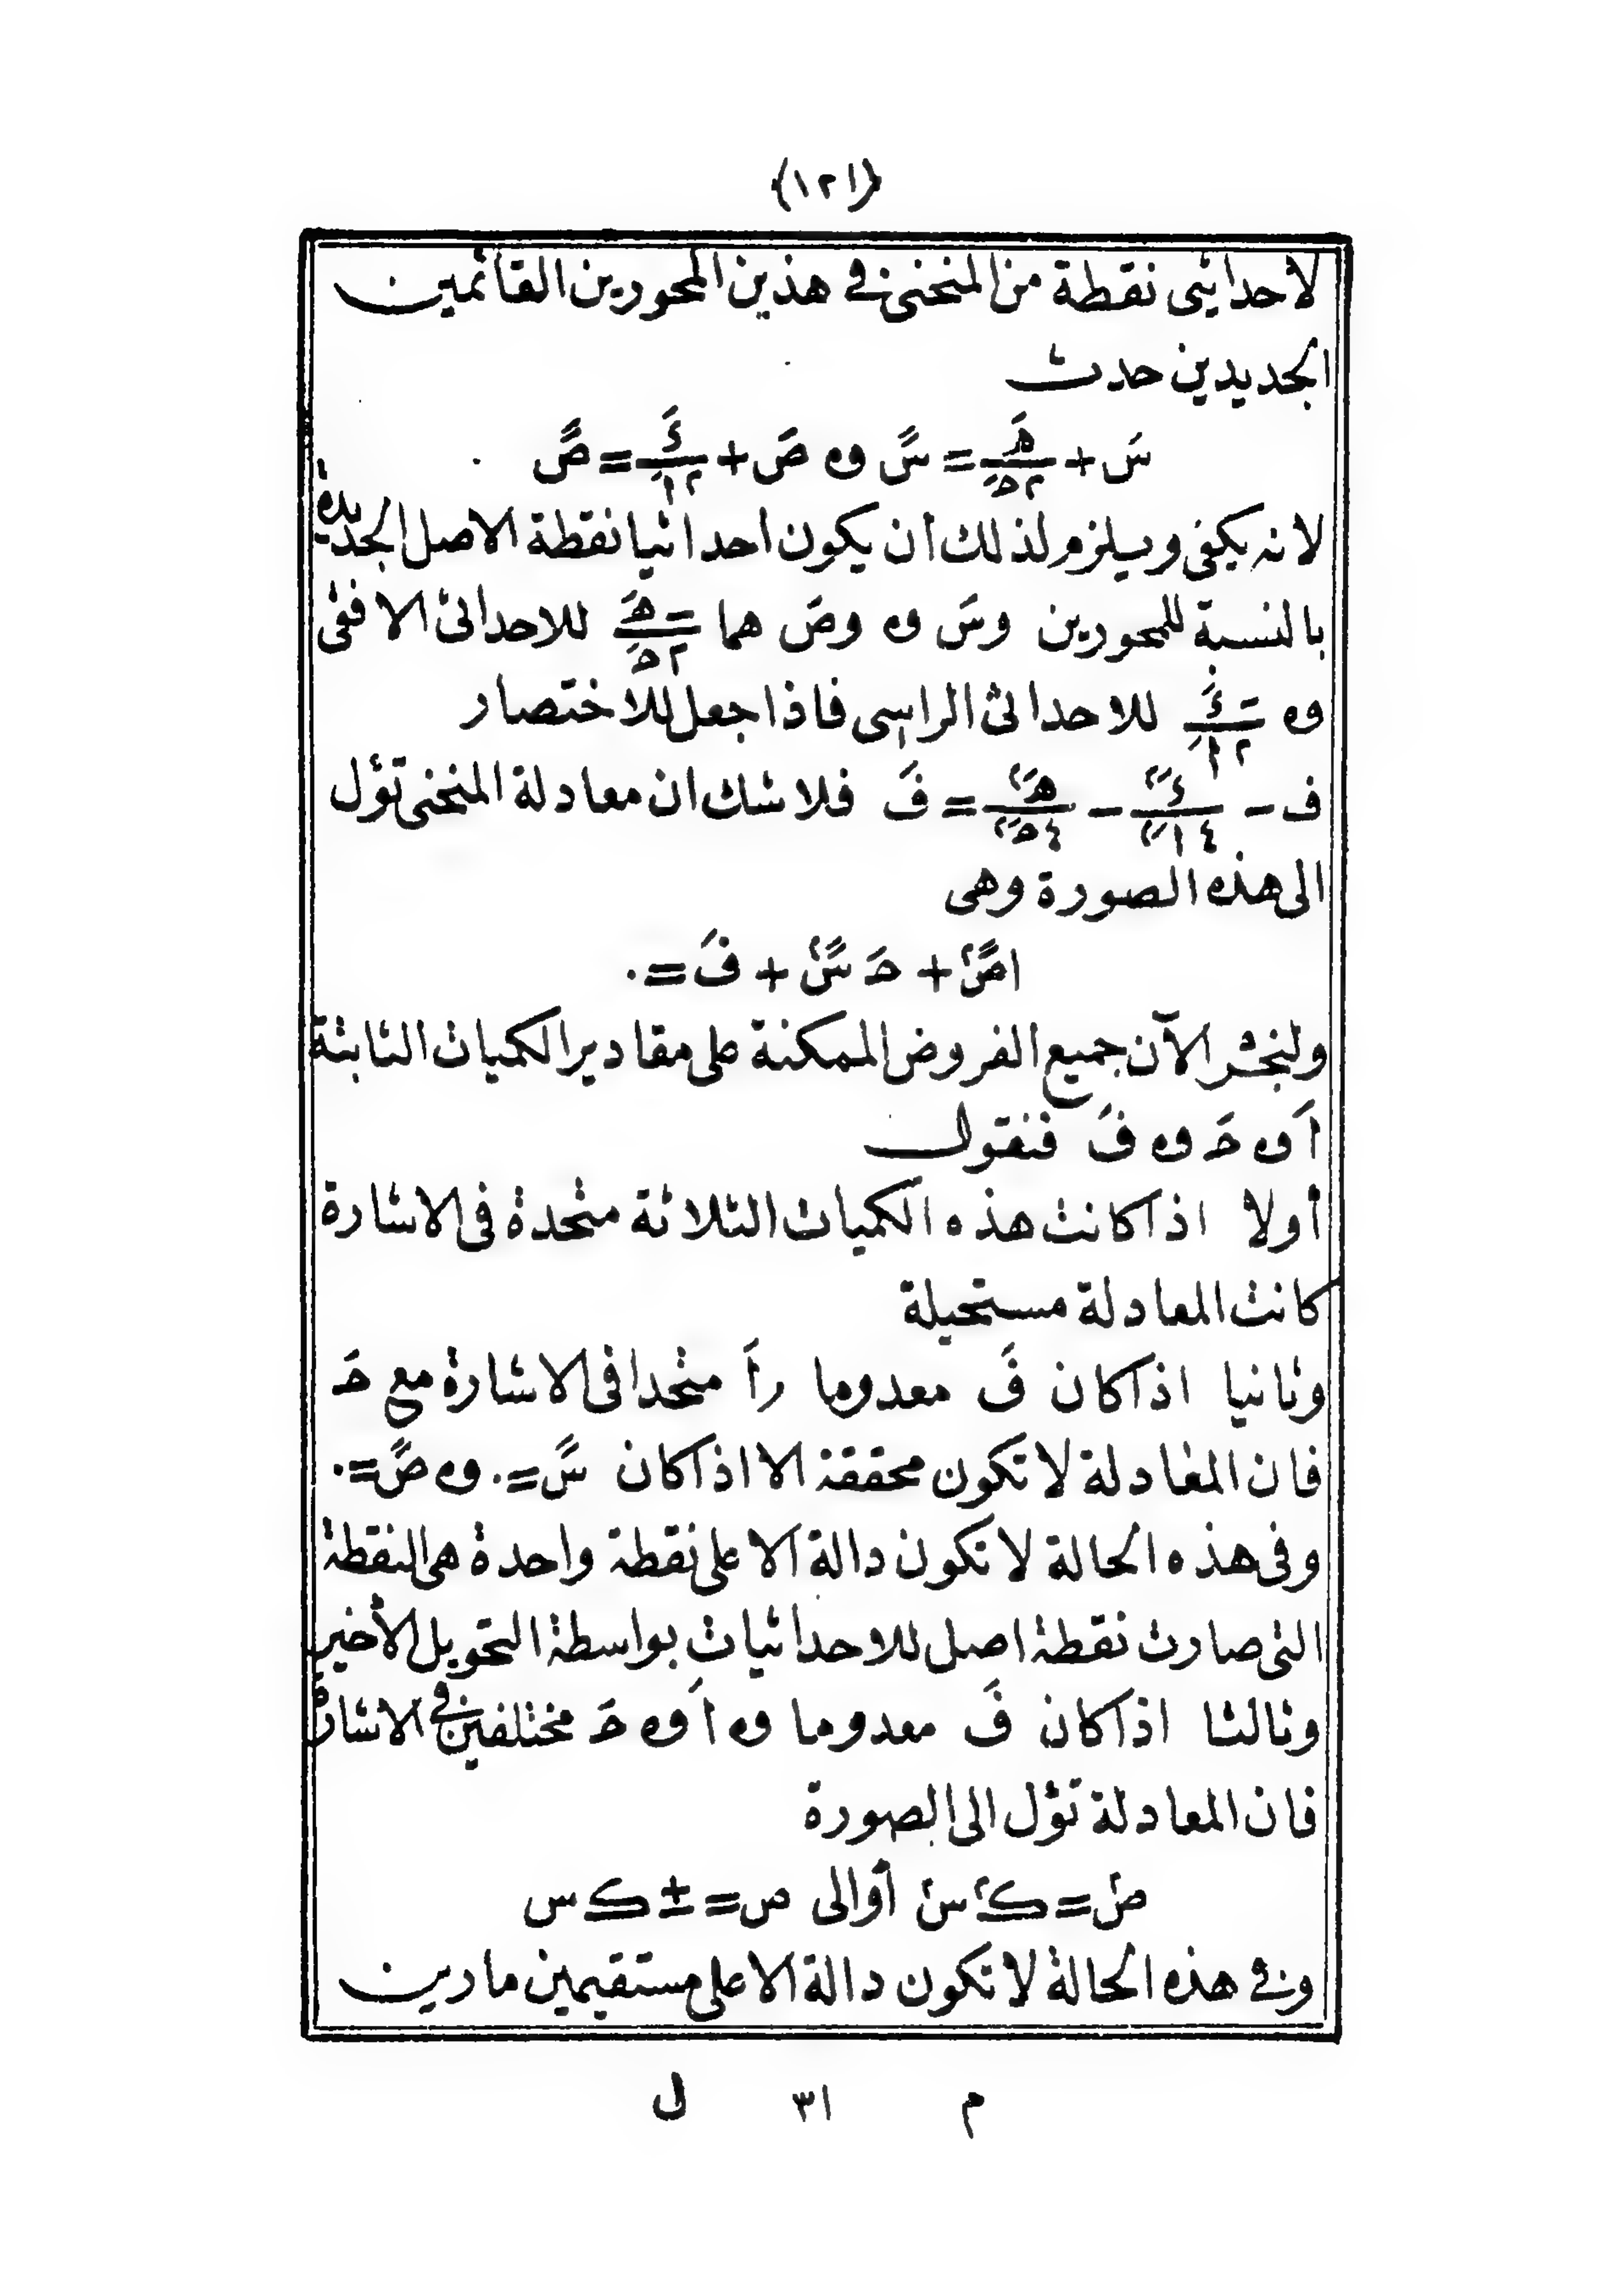 (١٢١)
لاحداثيى نقطة من المنحنى فى هذين المحورين القائمين
الجديدين حدث
سَ + هَ/٢حَ = سً وه صَ + ئَ/٢اَ = صً
لانه يكفى ويلزم لذلك ان يكون احداثيا نقطة الاصل الجديدة
بالنسبة للمحورين وسَ وه وصَ هما -هَ/٢حَ للاحداثى الافقى
وه -ئَ/٢اَ للاحداثى الراسى فاذا جعل للاختصار
ف - ئَ٢/٤اَ٢ - هَ٢/٤حَ٢ = فَ فلا شك ان معادلة المنحنى تؤل
الى هذه الصورة وهى
اصً٢ + حَ سً٢ + فَ = ٠
ولنجشر الآن جميع الفروض الممكنة على مقادير الكميات الثابتة
اَ وه حَ وه فَ فنقول
أولا اذا كانت هذه الكميات الثلاثة متحدة فى الاشارة
كانت المعادلة مستحيلة
وثانيا اذا كان فَ معدوما راَ متحدا فى الاشارة مع حَ
فان المعادلة لا تكون محققة الا اذا كان سً = ٠ وه صً = ٠
وفى هذه الحالة لا تكون دالة الا على نقطة واحدة هى النقطة
التى صارت نقطة اصل للاحداثيات بواسطة التحويل الأخير
وثالثا اذا كان فَ معدوما وه اَ وه حَ مختلفين فى الاشارة
فان المعادلة تؤل الى الصورة
ص٢ = ك٢ س٢ أوالى ص = ± ك س
وفى هذه الحالة لا تكون دالة الا على مستقيمين مارين
م ٣١ ل